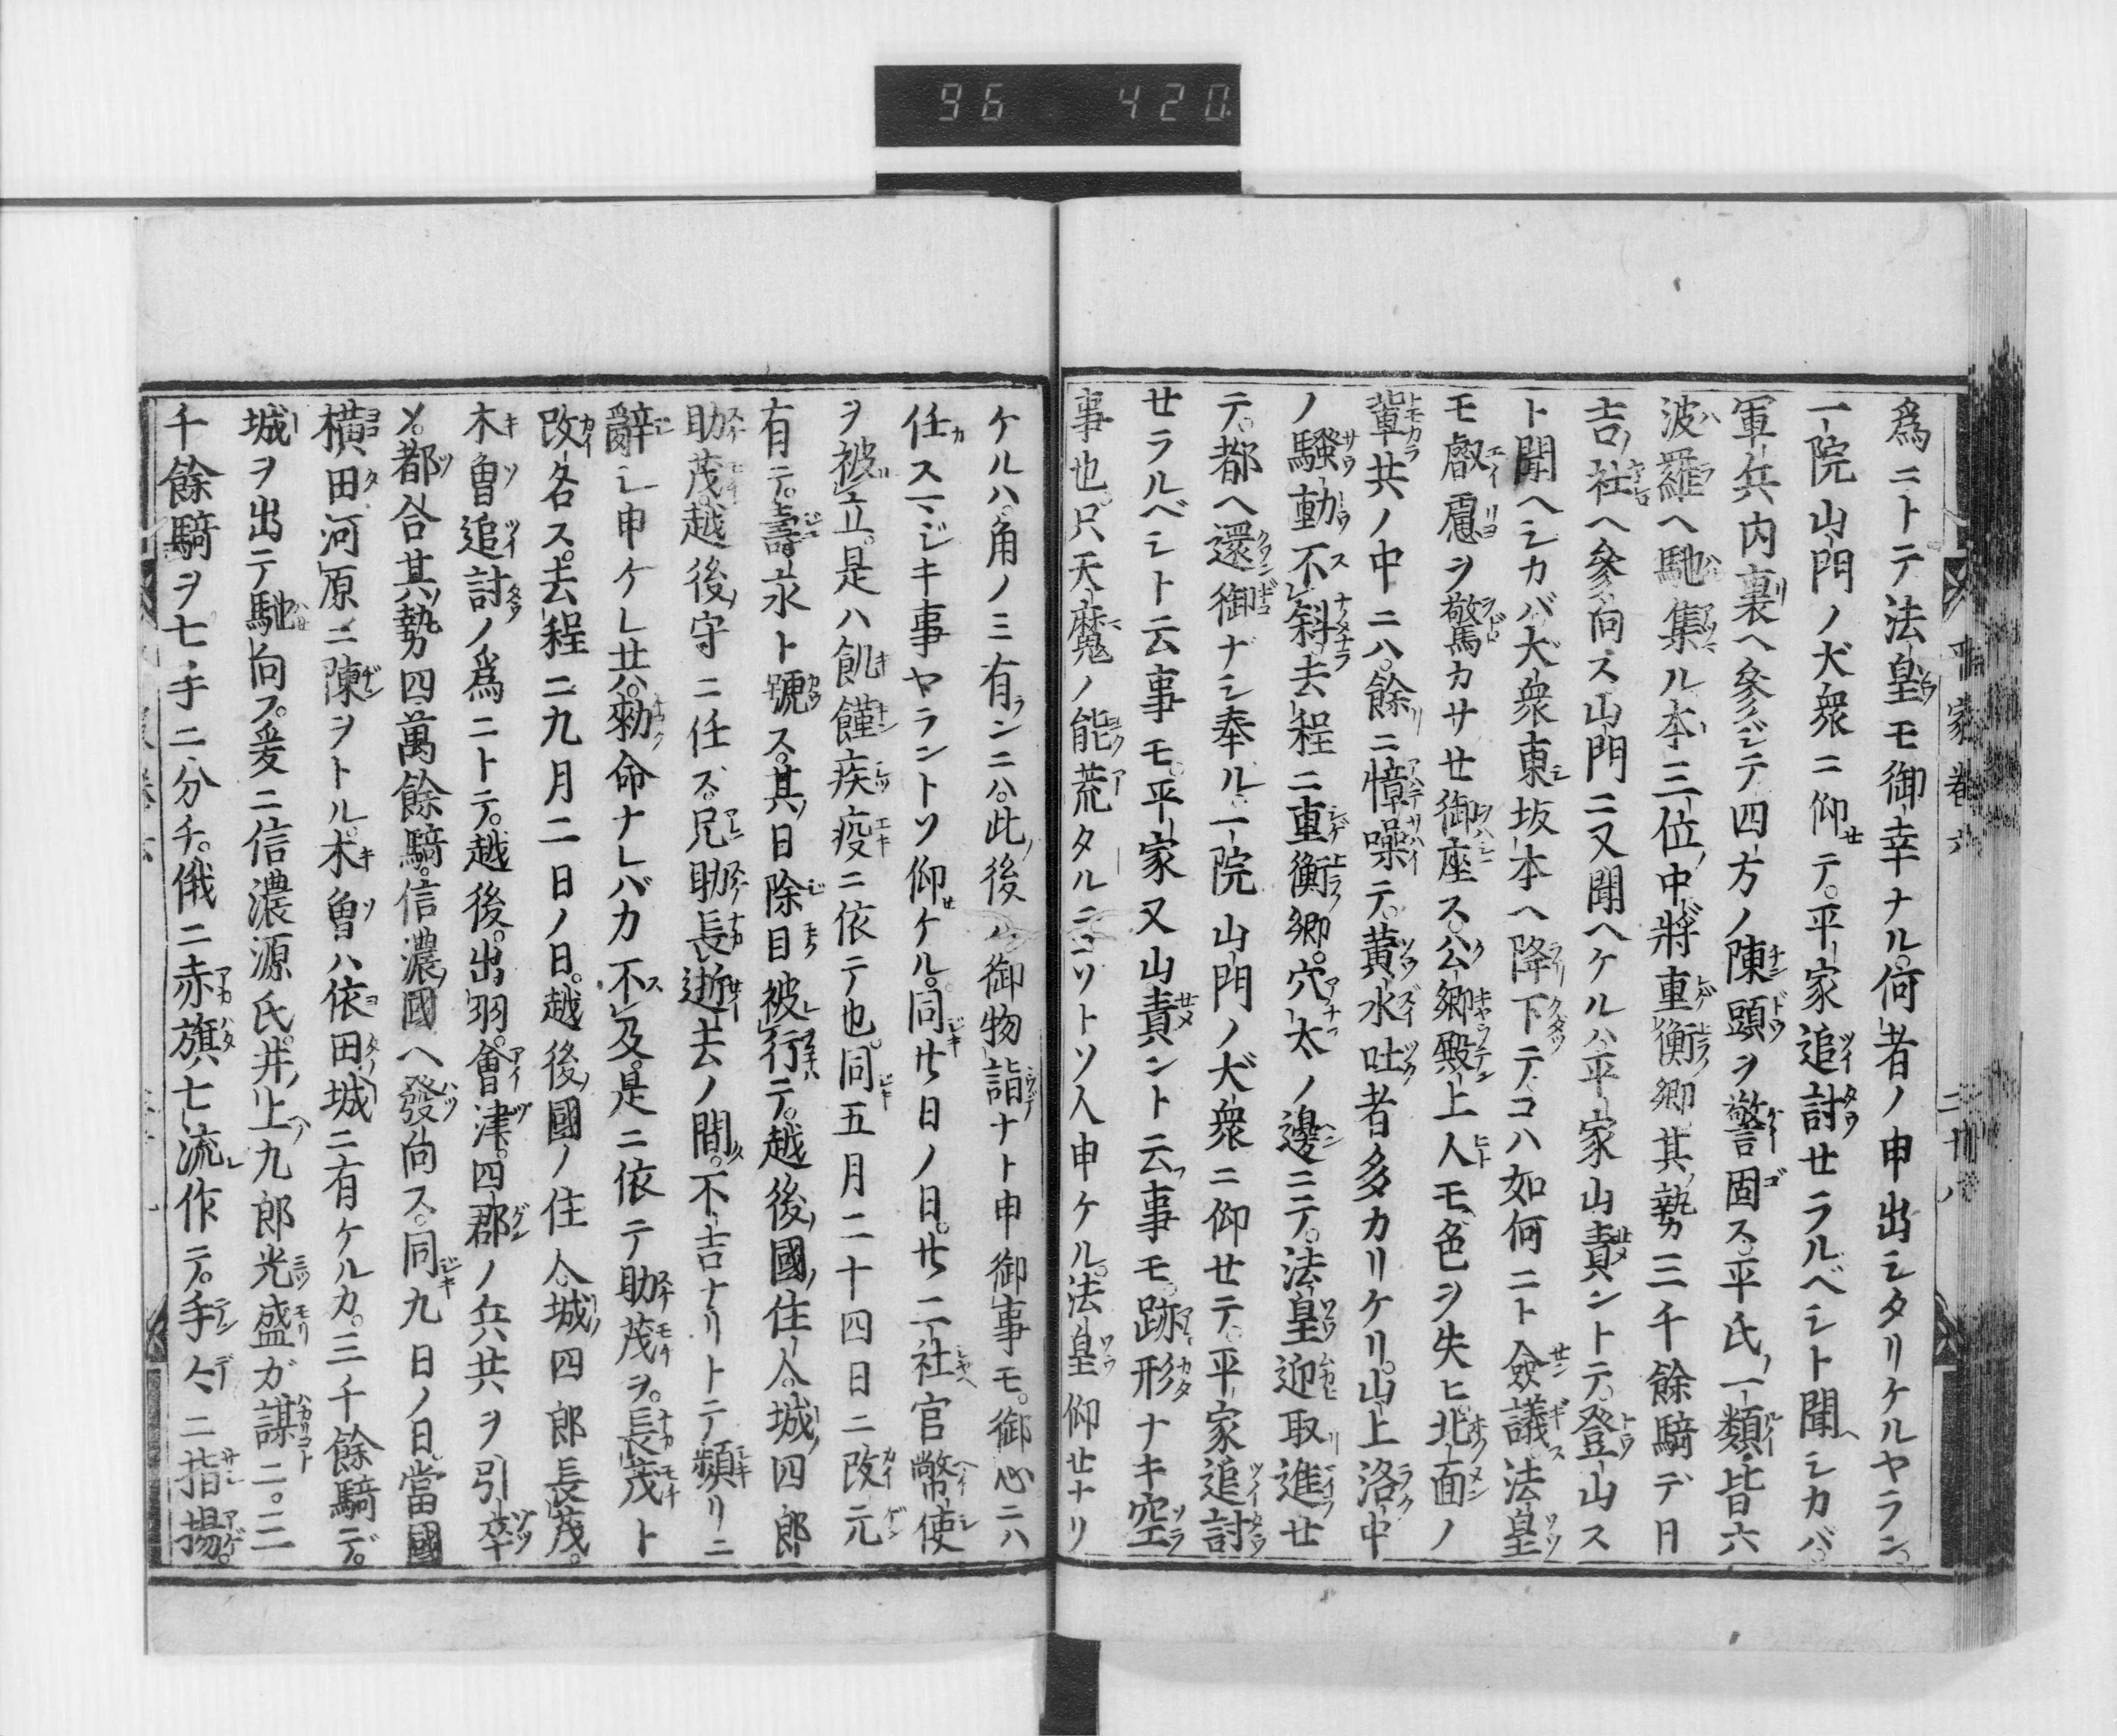 96 420
平家巻六 二十八
爲ニトテ法皇モ御幸ナル。何者ノ申出シタリケルヤラン。
一院山門ノ大衆ニ仰テ。平家追討セラルベシト聞シカバ。
軍兵内裏ヘ參ジテ四方ノ陳頭ヲ警固ス。平氏ノ一類皆六
波羅ヘ馳集ル本三位中將重衡卿其勢三千餘騎デ日
吉ノ社ヘ參向ス山門ニ又聞ヘケルハ平家山責ントテ登山ス
ト聞ヘシカバ大衆東坂本ヘ降下テコハ如何ニト僉議ス法皇
モ叡慮ヲ驚カサセ御座ス。公卿殿上人モ色ヲ失ヒ北面ノ
輩共ノ中ニハ。餘ニ憧噪テ。黄水吐者多カリケリ。山上洛中
ノ騷動不斜去程ニ重衡卿。穴太ノ邊ニテ。法皇迎取進セ
テ。都ヘ還御ナシ奉ル。一院山門ノ大衆ニ仰セテ。平家追討
セラルベシト云事モ。平家又山責ント云事モ。跡形ナキ空
事也。只天魔ノ能荒タルニコソトソ人申ケル。法皇仰セナリ
ケルハ。角ノミ有ンニハ。此後ハ御物詣ナト申御事モ。御心ニハ
任スマジキ事ヤラントソ仰ケル。同廿日ノ日。廿二社官幣使
ヲ被立。是ハ飢饉疾疫ニ依テ也。同五月二十四日ニ改元
有テ。壽永ト號ス。其日除目被行テ。越後國ノ住人。城四郎
助茂。越後守ニ任ス。兄助長逝去ノ間。不吉ナリトテ頻リニ
辭シ申ケレ共。勅命ナレバカ不及。是ニ依テ助茂ヲ。長茂ト
改名ス。去程ニ九月二日ノ日。越後國ノ住人。城四郎長茂。
木曾追討ノ爲ニトテ。越後。出羽。會津。四郡ノ兵共ヲ引卒
ソ。都合其勢四萬餘騎。信濃國ヘ發向ス。同九日ノ日。當國
横田河原ニ陳ヲトル。木曾ハ依田城ニ有ケルカ。三千餘騎デ。
城ヲ出テ馳向フ。爰ニ信濃源氏。井上九郎光盛ガ謀ニ。三
千餘騎ヲ七手ニ分チ。俄ニ赤旗七流作テ。手々ニ指揚。